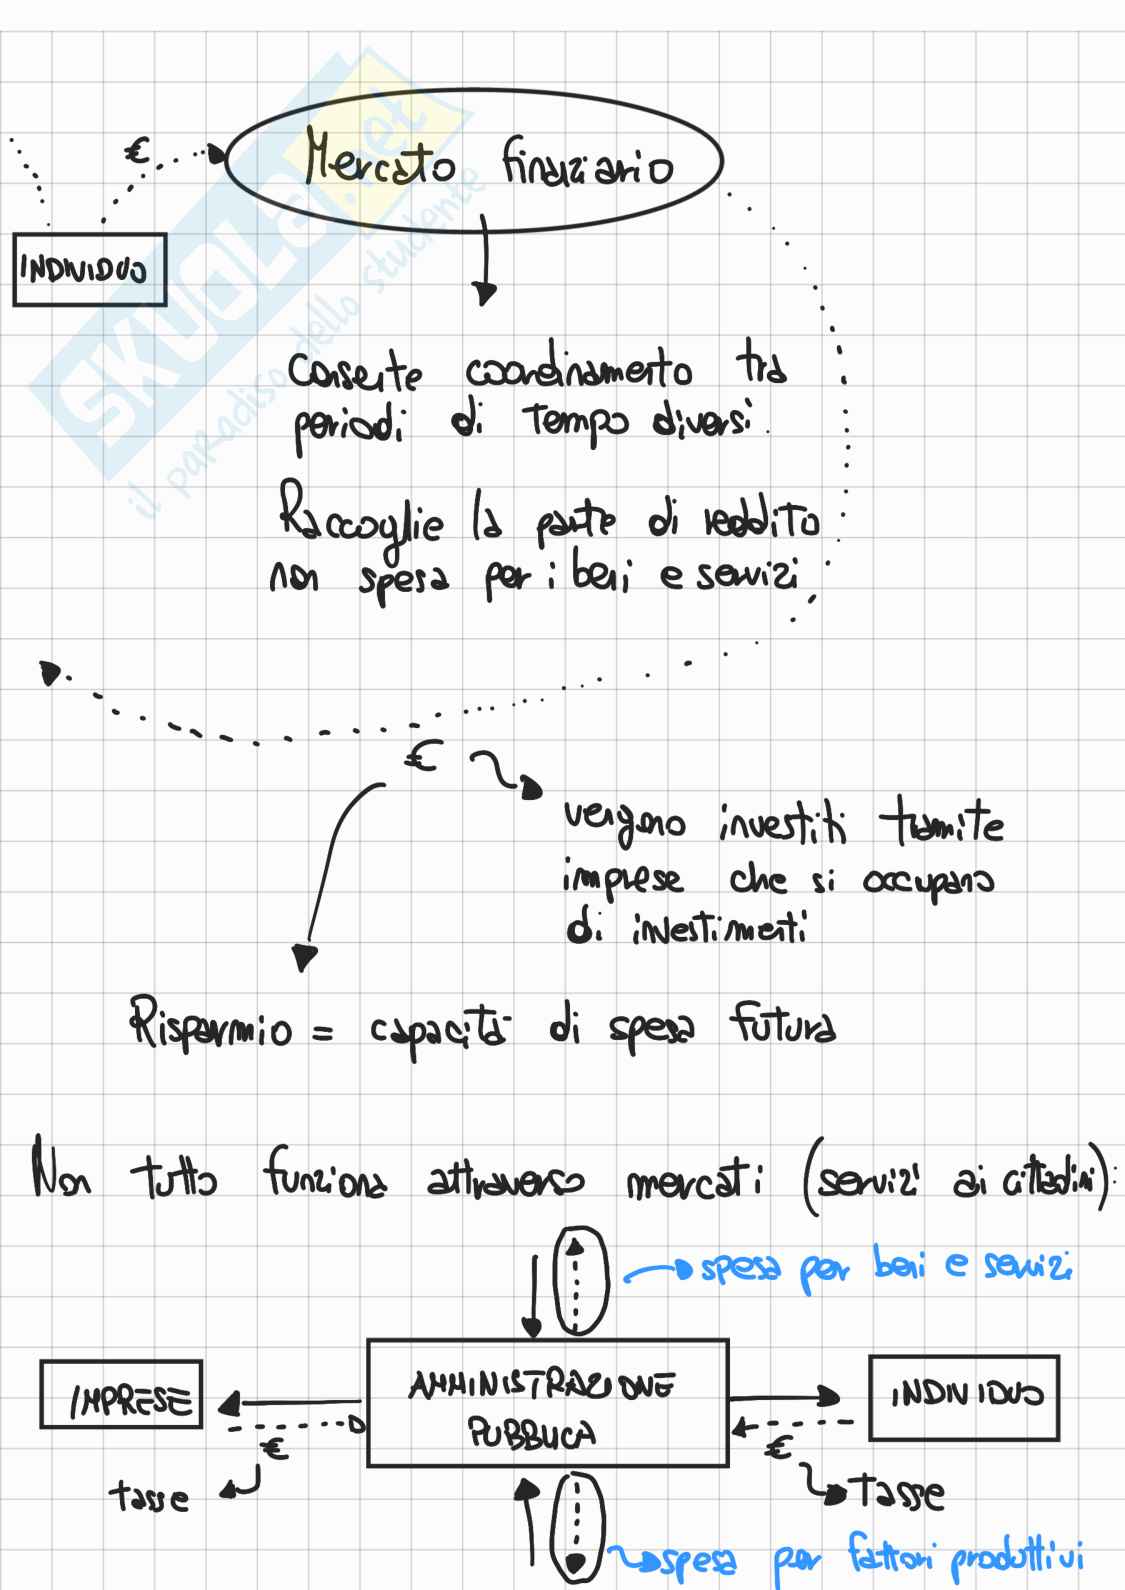 €
Mercato finaziario
INDIVIDUO
Consente coordinamento tra
periodi di tempo diversi.
Raccoglie la parte di reddito
non spesa per i beni e servizi
€
vengono investiti tramite
imprese che si occupano
di investimenti
Risparmio = capacità di spesa futura
Non tutto funziona attraverso mercati (servizi ai cittadini):
spesa per beni e servizi
IMPRESE
AMMINISTRAZIONE
PUBBLICA
INDIVIDUO
€
€
tasse
Tasse
spesa per fattori produttivi
SKUOLA.net
il paradiso dello studente